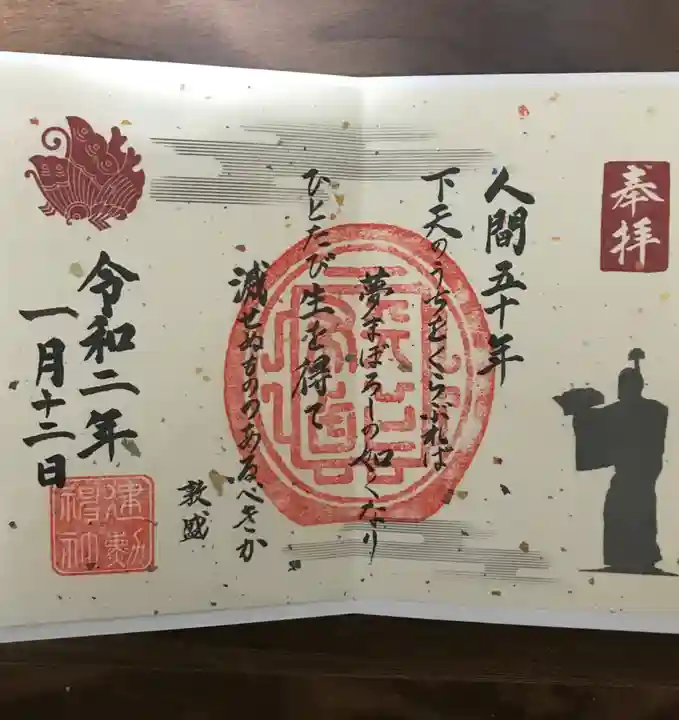 奉拝
人間五十年
下天のうちをくらぶれば
夢まぼろしの如くなり
ひとたび生を得て
滅せぬもののあるべきか
敦盛
令和二年
一月十二日
建勲
神社